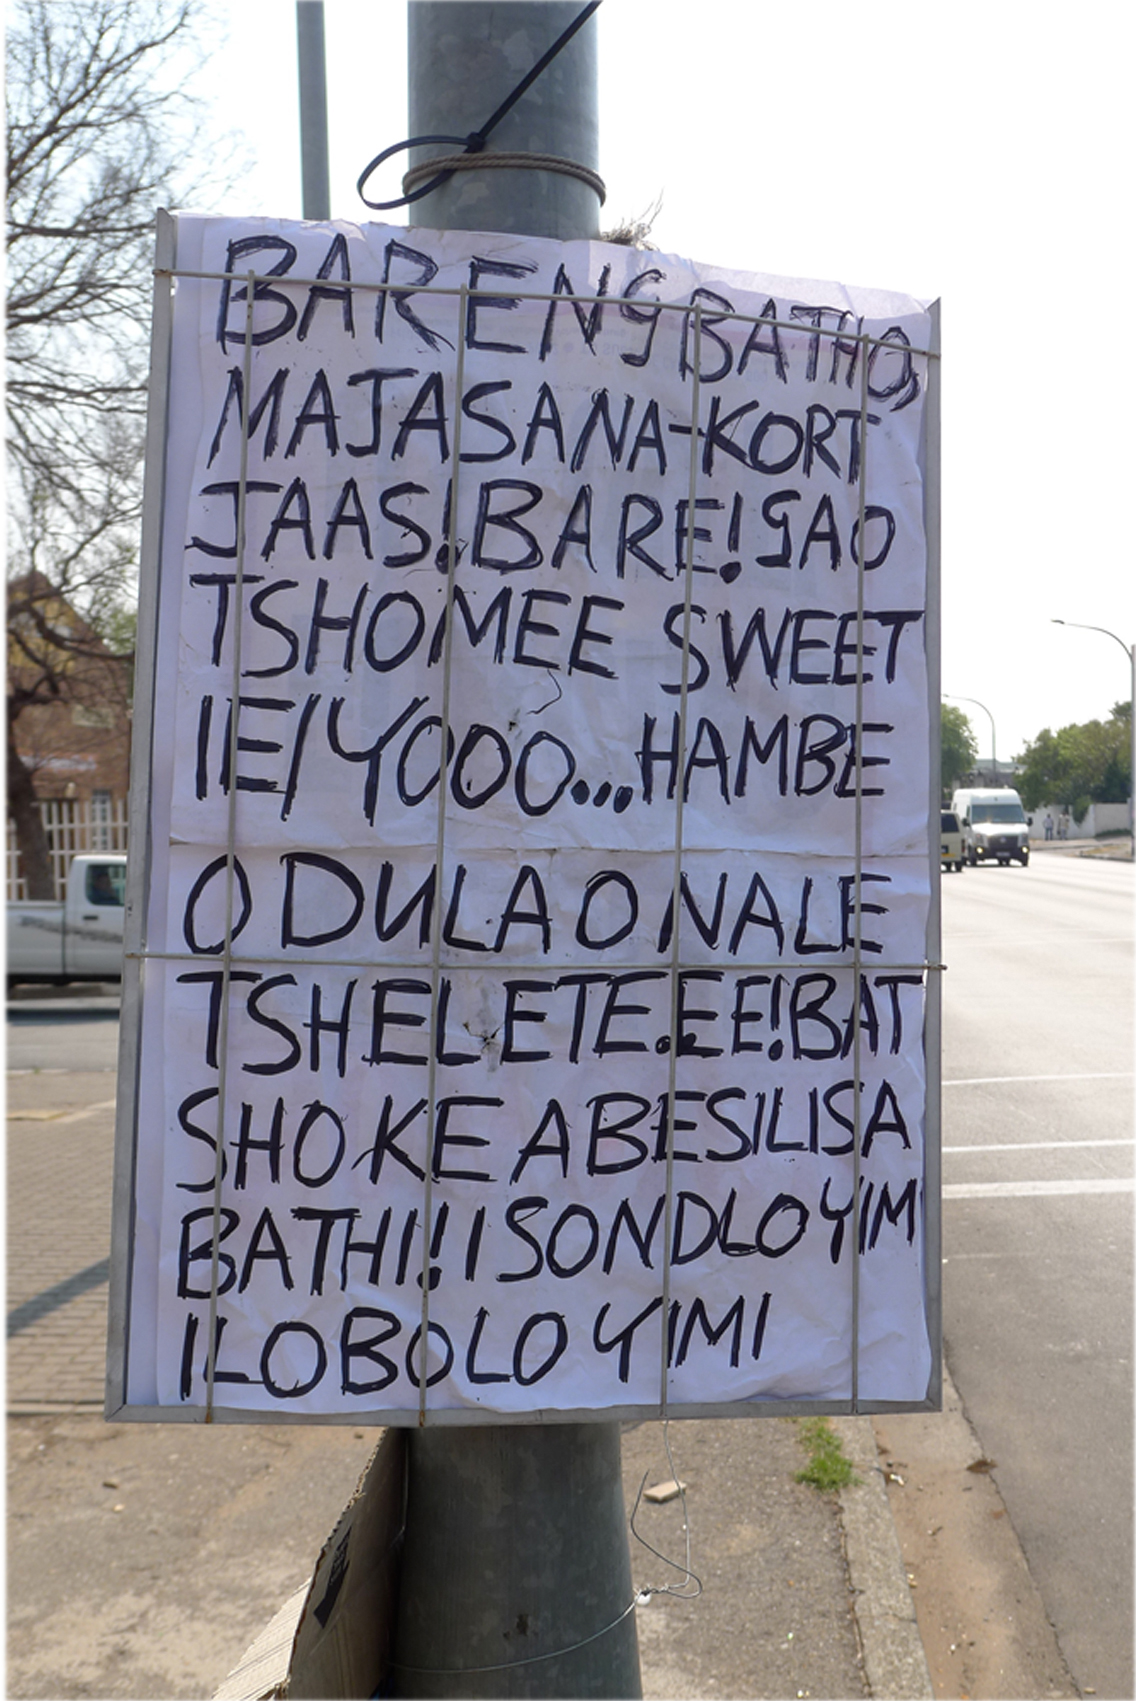 BARENG BATHO,
MAJASANA-KORT
JAAS! BARE! GAO
TSHOMEE SWEET
IE/YOOO...HAMBE
O DULA O NALE
TSHELETE.EE! BAT
SHOKE ABESILISA
BATHI!! ISONDLO YIMI
ILOBOLO YIMI